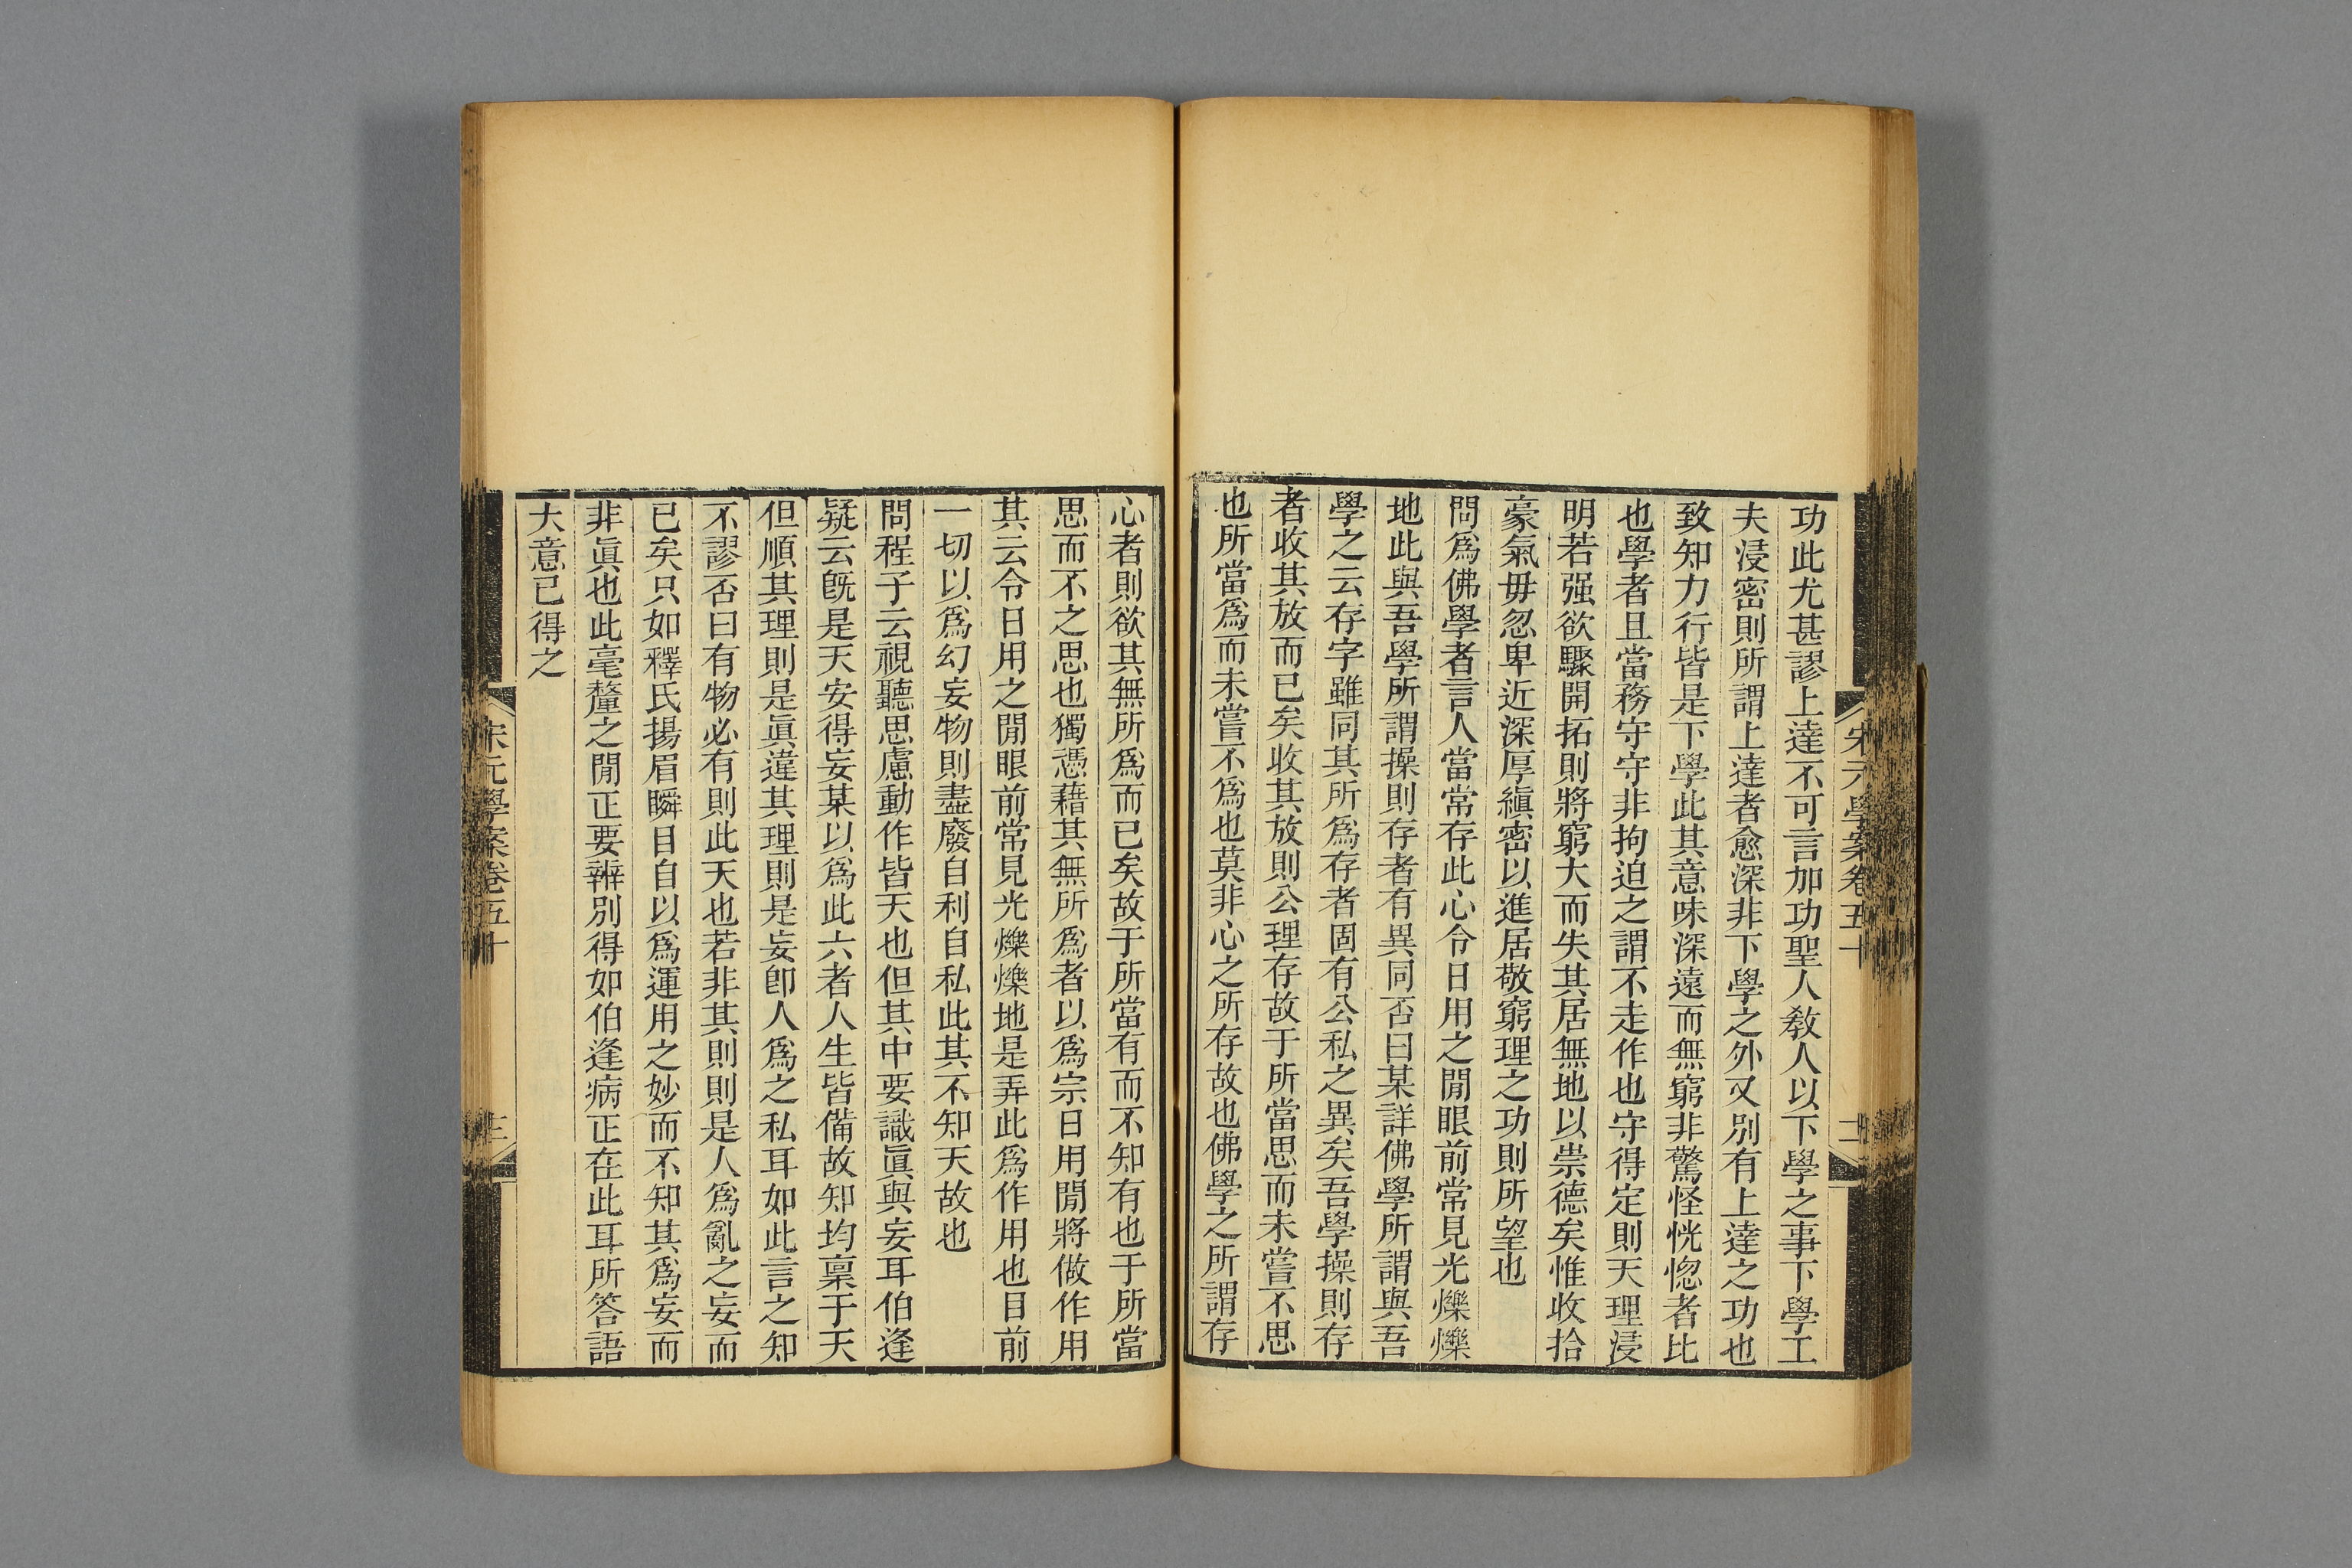 宋元學案卷五十
二
功此尤甚謬上達不可言加功聖人敎人以下學之事下學工
夫浸密則所謂上達者愈深非下學之外又別有上達之功也
致知力行皆是下學此其意味深遠而無窮非驚怪恍惚者比
也學者且當務守守非拘迫之謂不走作也守得定則天理浸
明若强欲驟開拓則將窮大而失其居無地以崇德矣惟收拾
豪氣毋忽卑近深厚縝密以進居敬窮理之功則所望也
問爲佛學者言人當常存此心令日用之閒眼前常見光爍爍
地此與吾學所謂操則存者有異同否曰某詳佛學所謂與吾
學之云存字雖同其所爲存者固有公私之異矣吾學操則存
者收其放而已矣收其放則公理存故于所當思而未嘗不思
也所當爲而未嘗不爲也莫非心之所存故也佛學之所謂存
心者則欲其無所爲而已矣故于所當有而不知有也于所當
思而不之思也獨憑藉其無所爲者以爲宗日用閒將做作用
其云令日用之閒眼前常見光爍爍地是弄此爲作用也目前
一切以爲幻妄物則盡廢自利自私此其不知天故也
問程子云視聽思慮動作皆天也但其中要識眞與妄耳伯逢
疑云旣是天安得妄某以爲此六者人生皆備故知均稟于天
但順其理則是眞違其理則是妄卽人爲之私耳如此言之知
不謬否曰有物必有則此天也若非其則則是人爲亂之妄而
已矣只如釋氏揚眉瞬目自以爲運用之妙而不知其爲妄而
非眞也此毫釐之閒正要辨別得如伯逢病正在此耳所答語
大意已得之
宋元學案卷五十
三